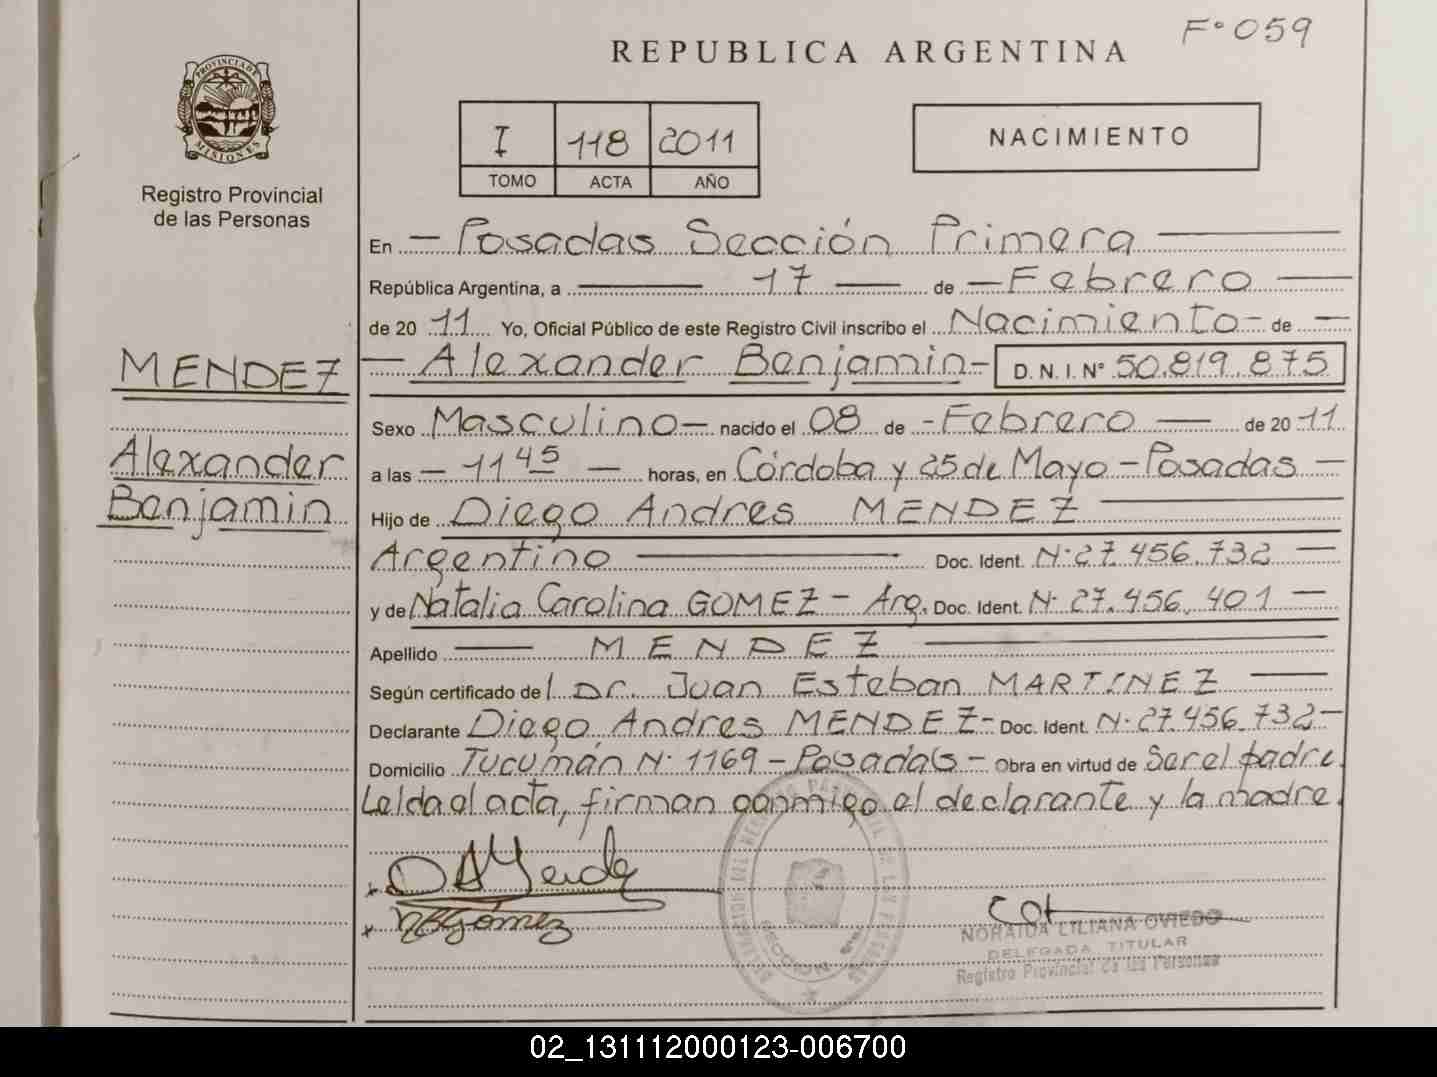 F° 059
REPUBLICA ARGENTINA
PROVINCIA DE
MISIONES
Registro Provincial
de las Personas
I 118 2011
TOMO ACTA AÑO
NACIMIENTO
En — Posadas Sección Primera —
República Argentina, a — 17 — de — Febrero —
de 20 11 Yo, Oficial Público de este Registro Civil inscribo el Nacimiento — de —
— Alexander Benjamin — D. N. I. N° 50.819.875
MENDEZ
Alexander
Benjamin
Sexo Masculino — nacido el 08 de — Febrero — de 20 11
a las — 11 45 — horas, en Córdoba y 25 de Mayo — Posadas —
Hijo de Diego Andres MENDEZ —
Argentino — Doc. Ident. N· 27.456.732 —
y de Natalia Carolina GOMEZ — Arg. Doc. Ident. N· 27.456.401 —
Apellido — MENDEZ —
Según certificado de l Dr. Juan Esteban MARTINEZ —
Declarante Diego Andres MENDEZ — Doc. Ident. N· 27.456.732 —
Domicilio Tucumán N· 1169 — Posadas — Obra en virtud de Ser el padre.
Leída el acta, firman conmigo el declarante y la madre.
Gómez
NORAIDA LILIANA OVIEDO
DELEGADA TITULAR
Registro Provincial de las Personas
02_131112000123-006700